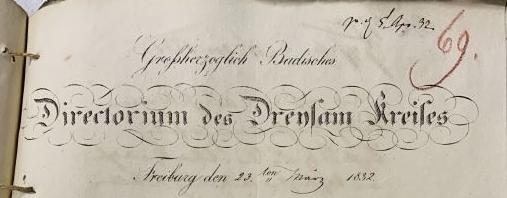 pr. d. 5. Apr. 32.
69.
Großherzoglich Badisches
Directorium des Dreysam Kreises
Freiburg den 23.ten März 1832.